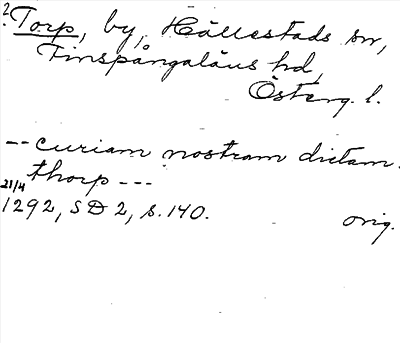 ? Torp, by, Hällestads sn,
Finspångaläns hd,
Österg. l.
-- curiam nostram dictam
thorp ---
21/4
1292, SD 2, s. 140. orig.